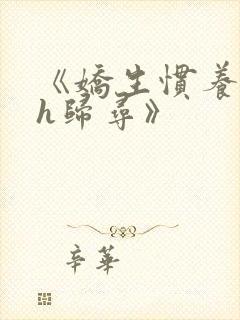 《嬌生慣養
h歸尋》
辛華